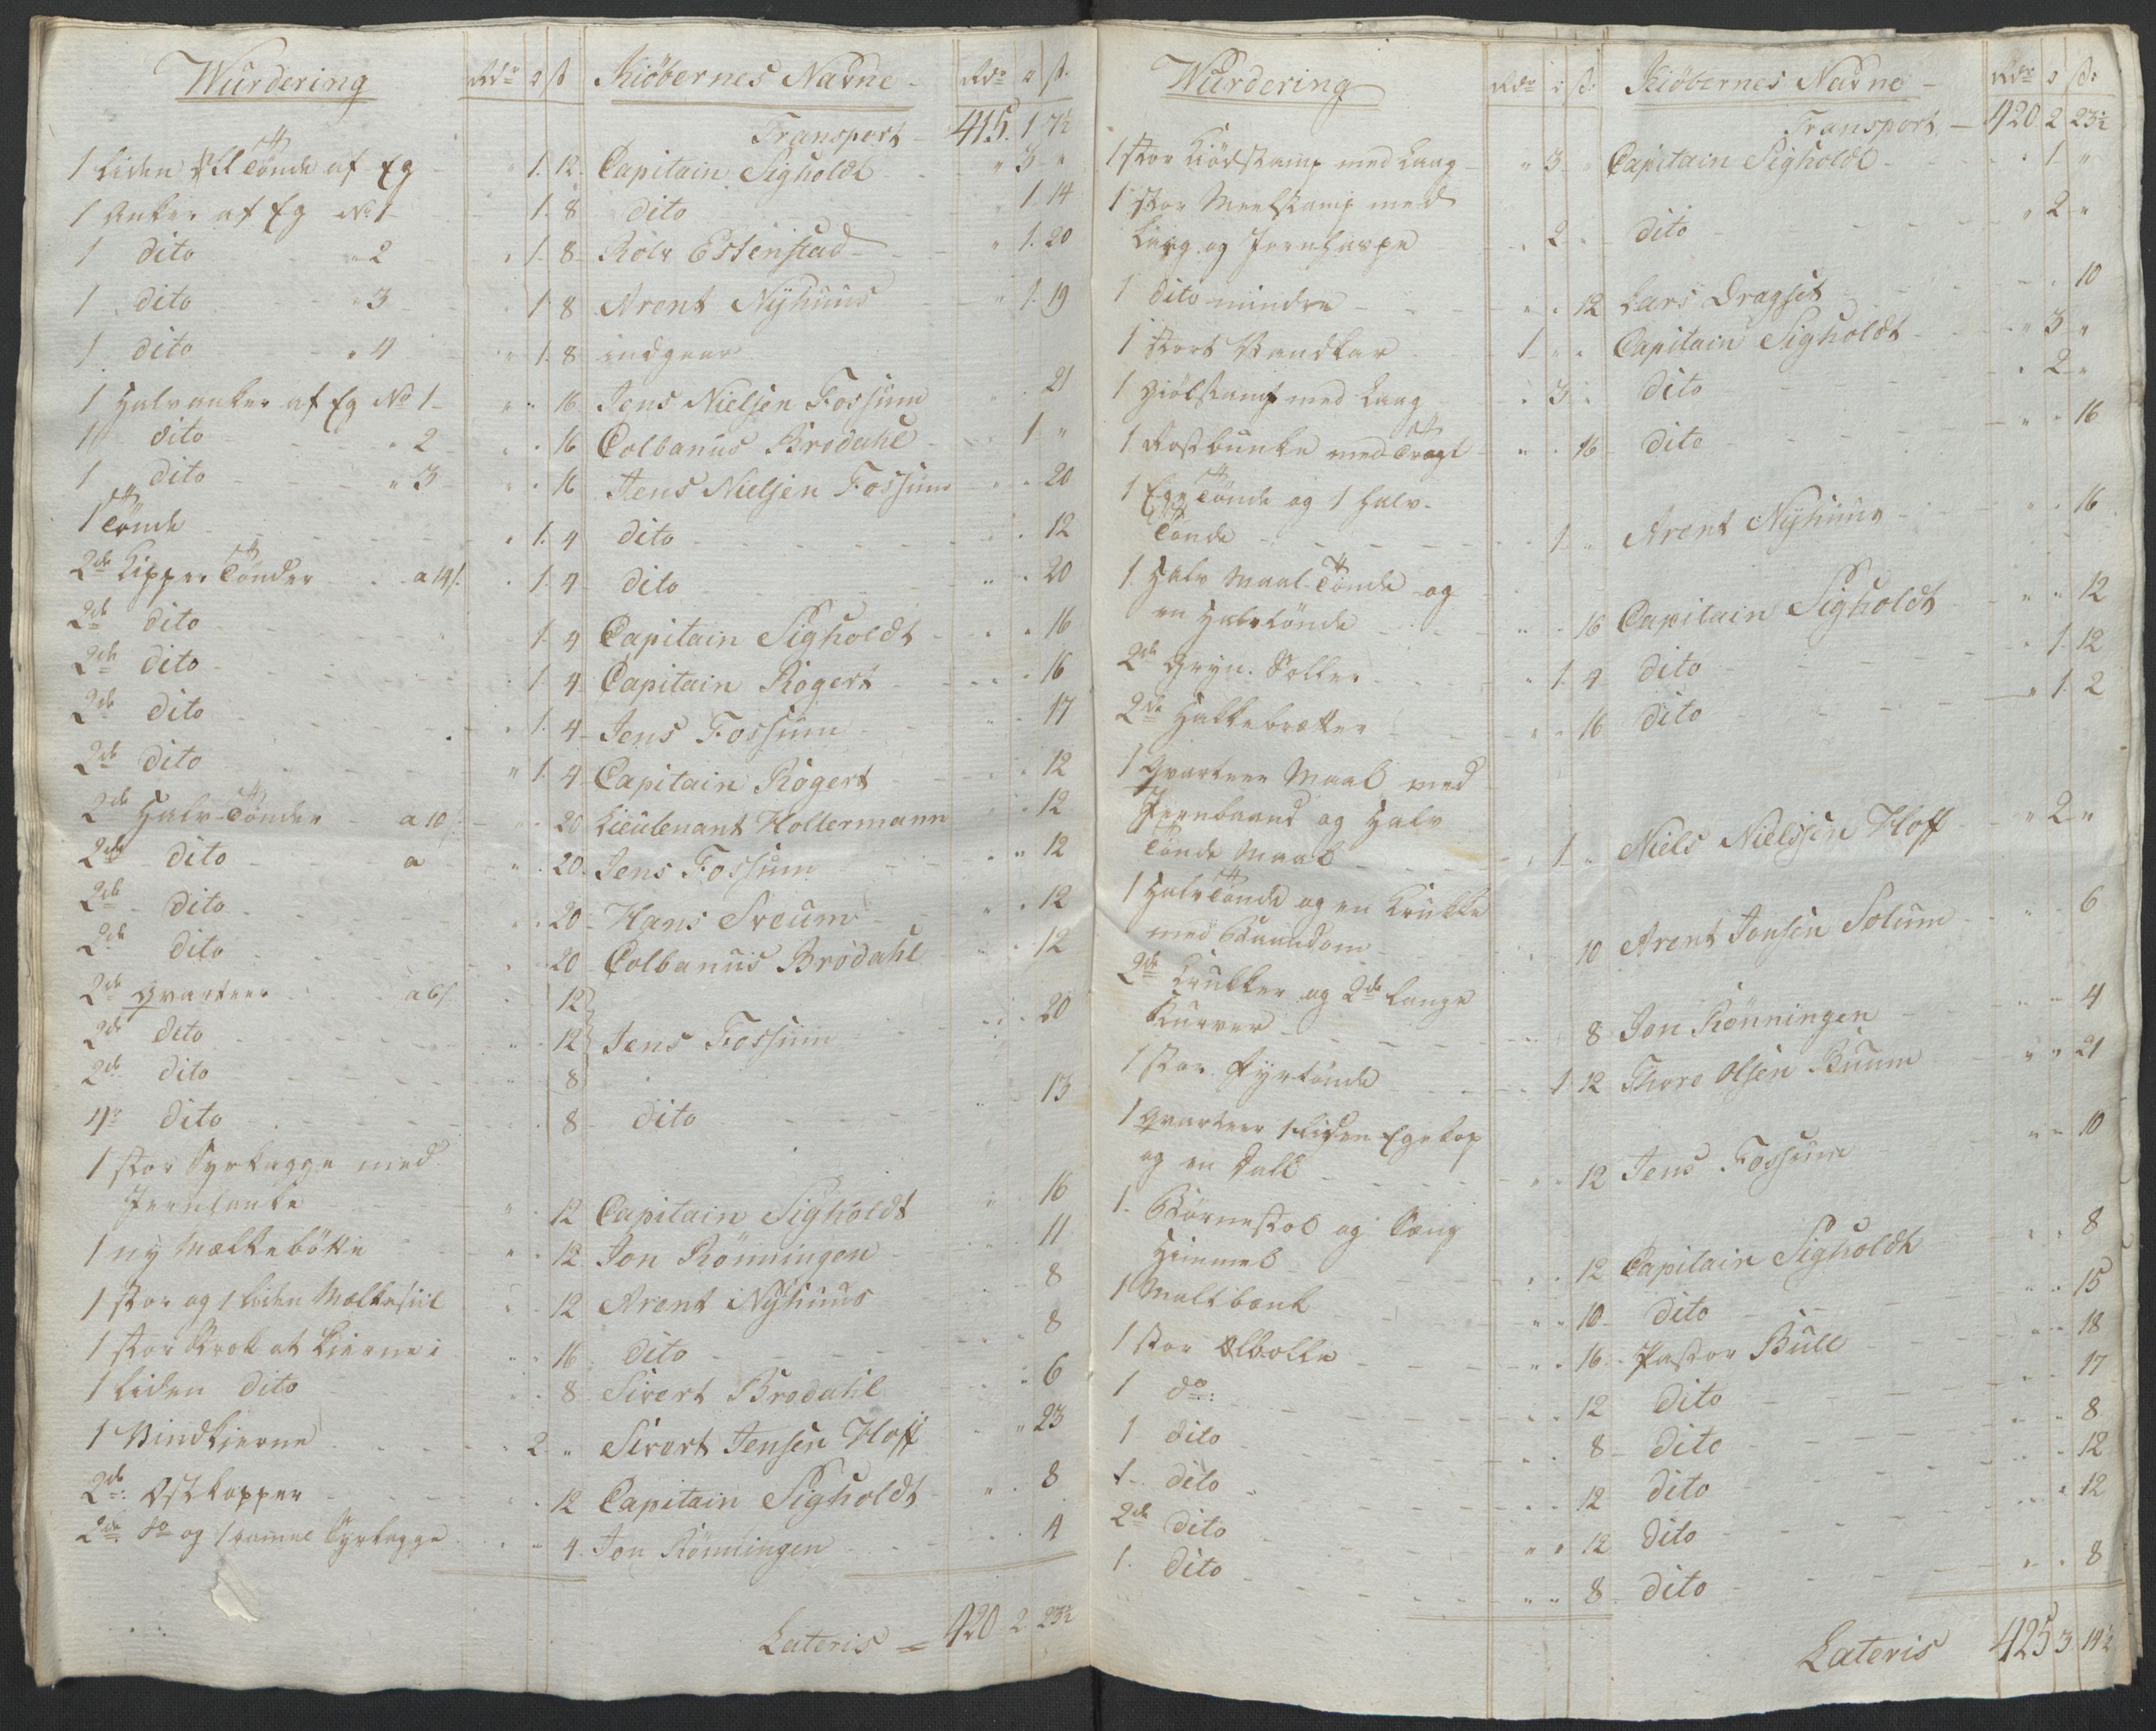 Wurdering Rdr o s Kiöbernes Navne Rdr o s.
Transport 415. 1 7½
1 liden Öl Tönde af Eg " 1. 12. Capitain Sigholdt " 3 "
1 Anker af Eg No 1 1. 8 dito 1 14
1 dito " 2 " 1. 8 Rolv Estenstad " 1. 20
1 dito " 3 1. 8 Arent Nÿhuus " 1. 19
1 dito " 4 " 1. 8 indgaar
1 Halvanker af Eg No 1 " " 16 Jens Nielsen Fossum " 21
1 dito " 2 " " 16 Colbanus Brodahl 1 "
1 dito " 3 " " 16 Jens Nielsen Fossum " " 20
1 Tönde " 1. 4 dito " " 12
2de Kipper Tönder a 14 s. " 1. 4 dito " " 20
2de dito 1. 4 Capitain Sigholdt " " 16
2de dito 1. 4 Capitain Rogert " " 16
2de dito " 1. 4 Jens Fossum " " 17
2de dito " 1. 4 Capitain Rogert " " 12
2de Halv-Tönder a 10 " " 20 Lieutenant Hollermann " " 12
2de dito a " " 20. Jens Fossum " " 12
2de dito " " 20 Hans Sveum " " 12
2de dito " " 20 Colbanus Brodahl " " 12
2de Qvarteer a 6 s. 12
2de dito " " 12 Jens Fossum " " 20
2de dito 8
4r dito 8 dito " 13
1 stor Syrkagge med
Jernhanke " " 12 Capitain Sigholdt " " 16
1 ny Melkebötte " " 12 Jon Rönningen 11
1 stor og 1 liden Melkesiil 12 Arent Nÿhuus 8
1 stor Brok at kierne i " " 16 dito " " 8
1 liden dito " " 8 Sivert Brodahl " 6
1 Vindkierne " 2 " Sivert Jensen Hoff " 23
2de Ostkopper " " 12 Capitain Sigholdt " " 8
2de do og 1 gamel Syrkagge " " 4. Jon Rönningen " " 4
Lateris = 420 2 23½
Wurdering Rdr o s. Kiöbernes Navne Rdr o s.
Transport 420 2 23½
1 stor Kiödstamp med Laag " 3 " Capitain Sigholdt " 1. "
1 stor Meelstamp med
Laag og Jernhaspe " 2 " dito " 2 "
1 dito mindre " " 12 Lars Dragset " " 10
1 stort Vandkar 1 " " Capitain Sigholdt " 3 "
1 Giölstamp med Laag " 3 " dito " 2 "
1 Rostbunke med Tragt " " 16 dito " " 16
1 Ege Tönde og 1 halv-
Tönde 1. " Arent Nÿhuus " " 16
1. Halv Maal-Tönde og
en Halvtönde " " 16 Capitain Sigholdt " " 12
2de Gryn. Solder " 1. 4 dito " 1. 12
2de Hakkebretter " " 16 dito " 1. 2
1 Qvarteer Maal med
Jernbaand og Halv
Tönde Maal " 1 " Niels Nielssen Hoff " 2 "
1 Halv Tönde og en Krukke
med 10 Arent Jonsen Solum " " 6
2de Krukker og 2de lange
Kurver " " 8 Jon Rönningen " " 4
1 stor Fyrtönde " 1 12 Thore Olsen Buum " " 21
1 Qvarteer 1 liden Egekop
og en Dall " " 12 Jens Fossum " " 10
1. Börnestol og Seng
Himmel " " 12 Capitain Sigholdt " " 8
1 Maltbenk " " 10 dito " " 15
1 stor Ølbolle " " 16. Pastor Bull " " 18
1 do: " " 12 dito " " 17
1 dito " " 8 dito " " 8
1. dito " " 12 dito " " 12
2de dito " " 12 dito " " 12
1. dito " " 8 dito " " 8
Lateris 425 3 14½